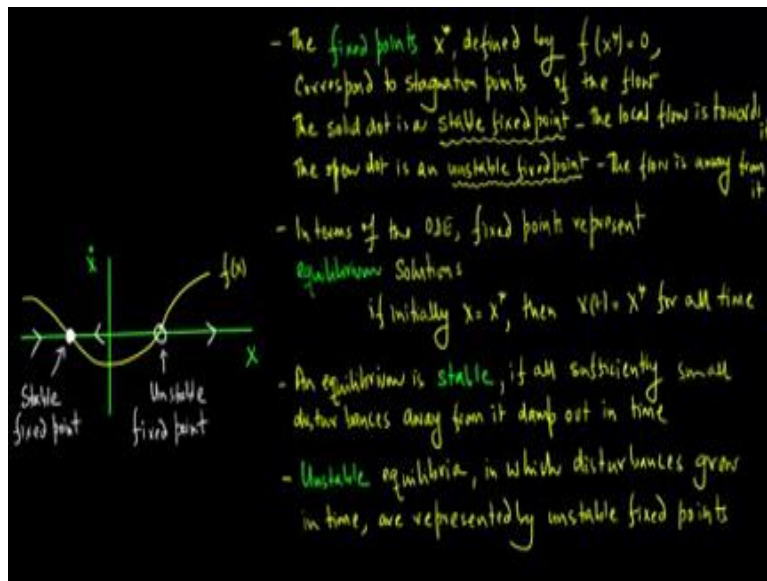 - The fixed points x*, defined by f(x*)=0,
Correspond to stagnation points of the flow
The solid dot is a stable fixed point - The local flow is towards it
The open dot is an unstable fixed point - The flow is away from it
- In terms of the ODE, fixed points represent
equilibrium solutions
if initially x = x*, then x(t) = x* for all time
- An equilibrium is stable, if all sufficiently small
disturbances away from it damp out in time
- Unstable equilibria, in which disturbances grow
in time, are represented by unstable fixed points
ẋ
f(x)
x
Stable
fixed point
Unstable
fixed point